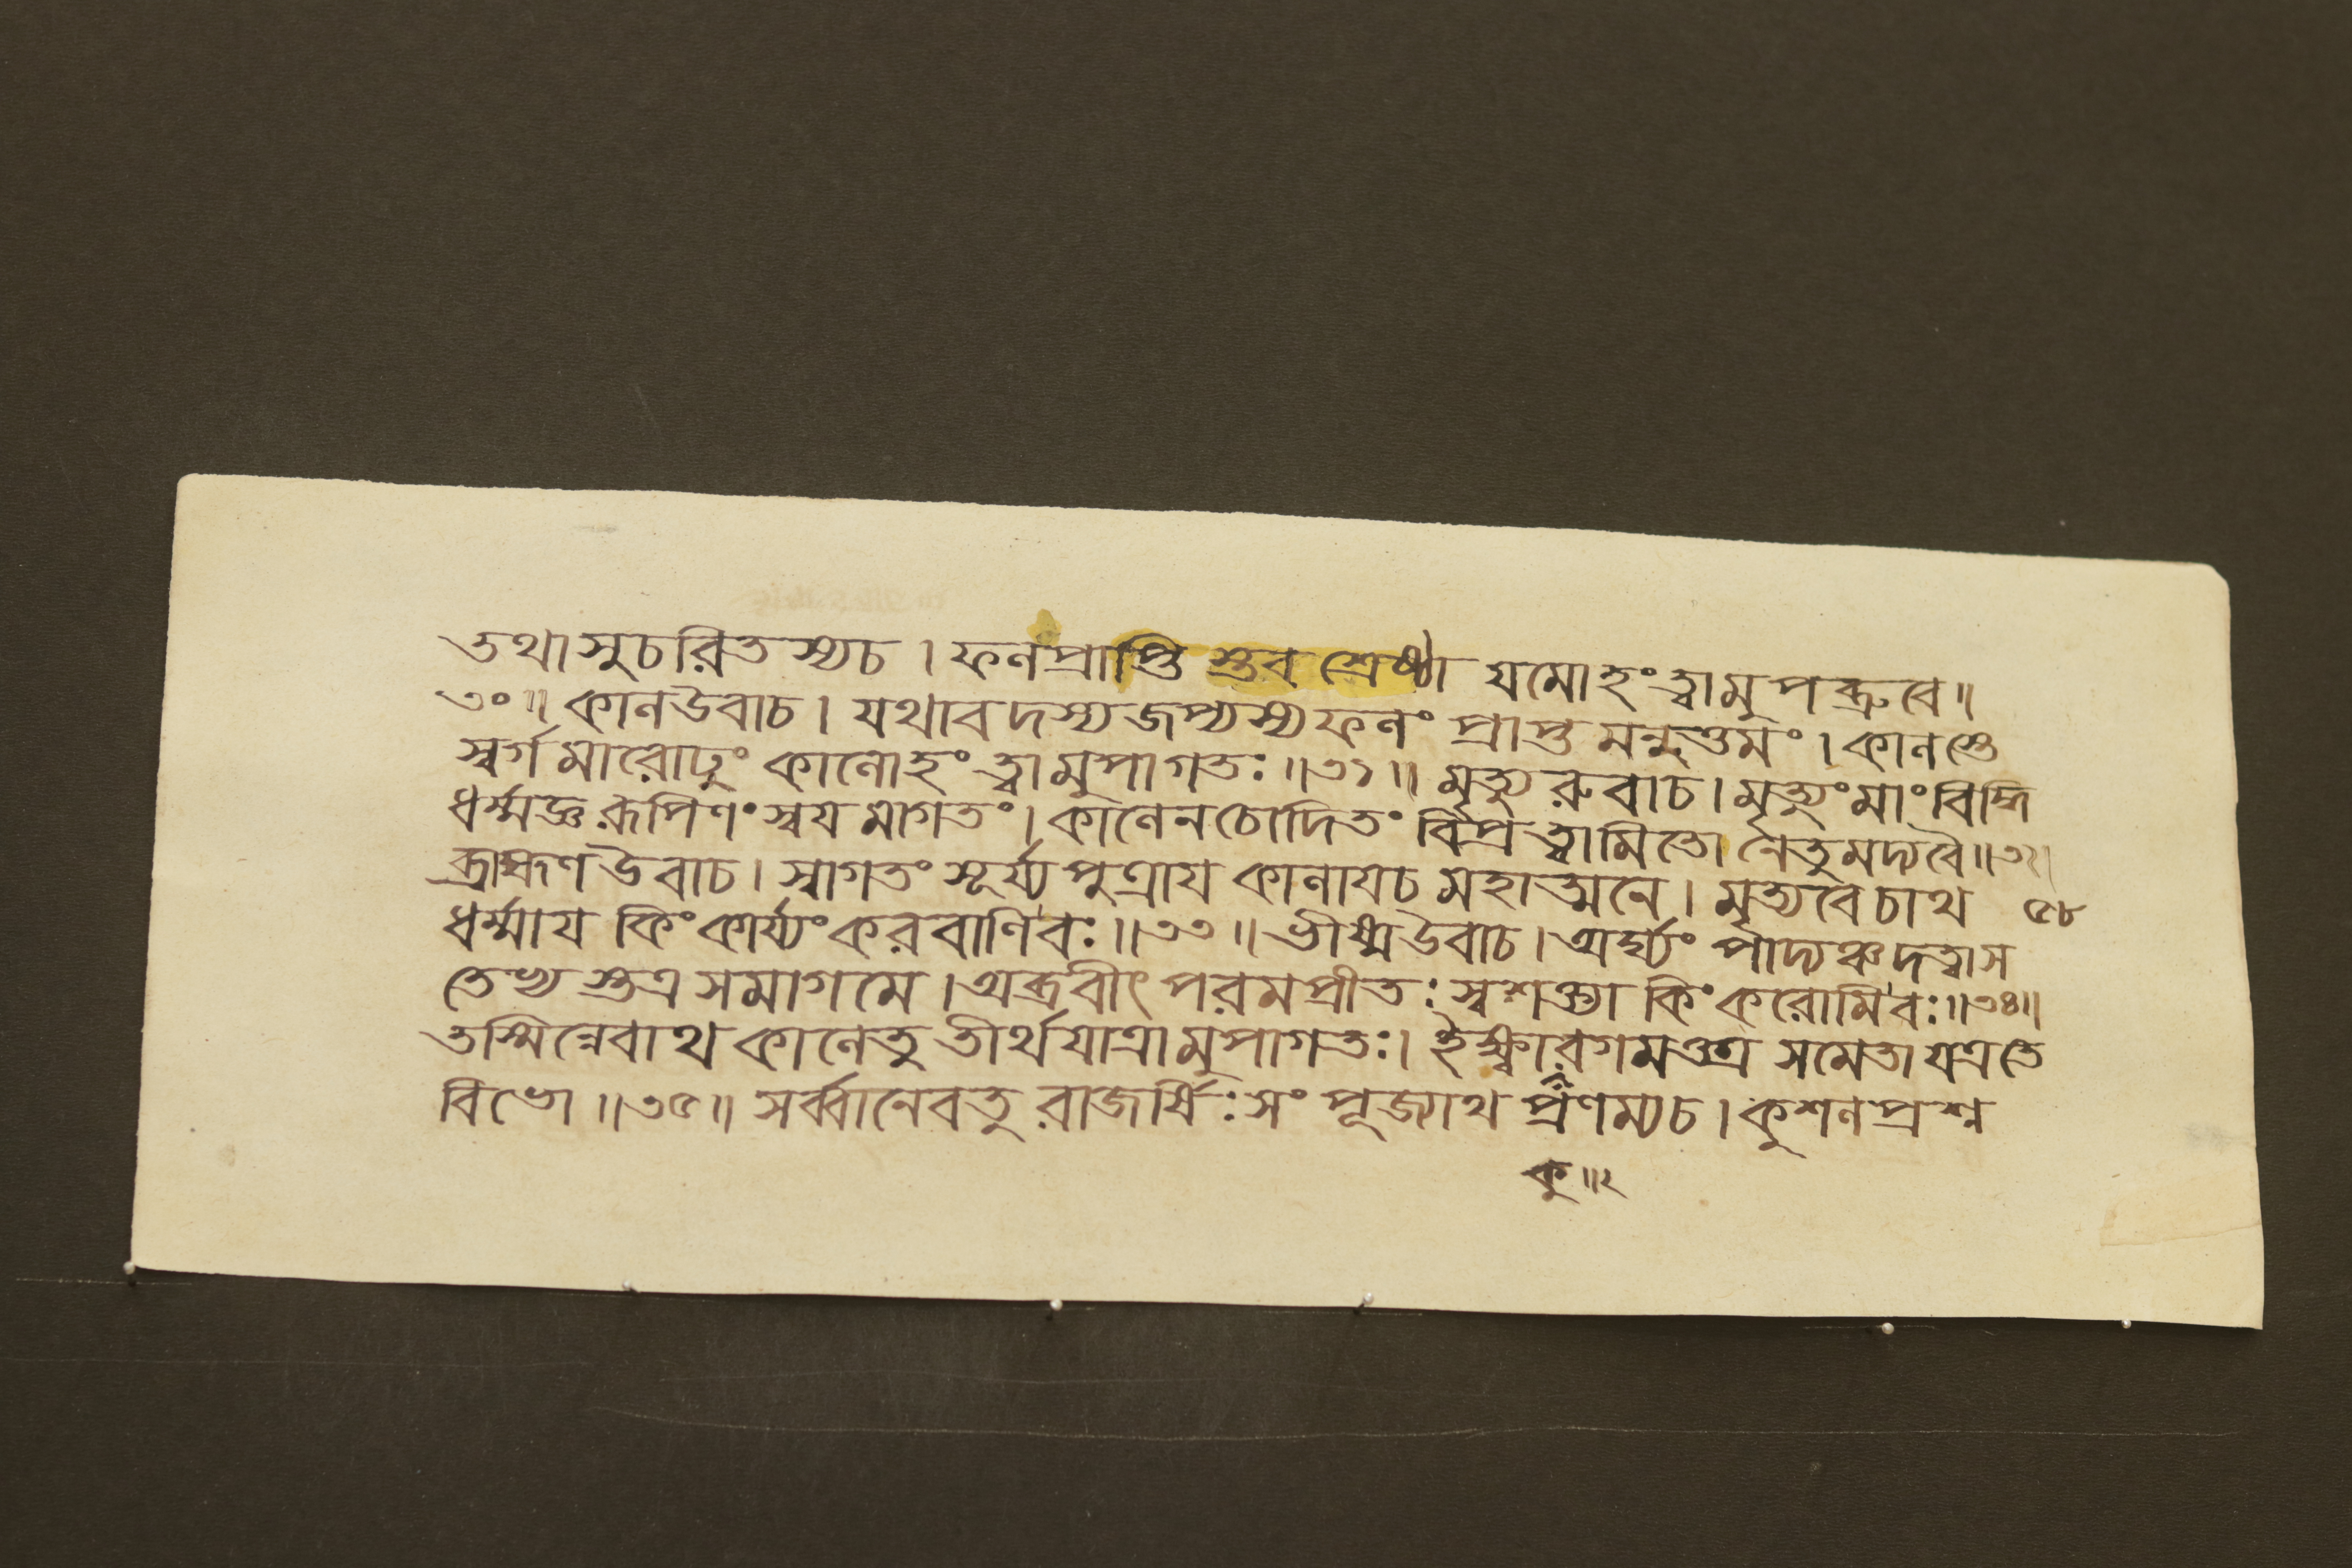 তথাসুচরিতস্যচ । ফলপ্রাপ্তিস্তব শ্রেষ্ঠা যমোহং ত্বামুপব্রুবে ॥
৩০ ॥ কালউবাচ । যথাবদস্যজপ্যস্যফলং প্রাপ্তমনুত্তমং । কালস্তে
স্বর্গমারোঢুং কালোহং ত্বামুপাগতঃ ॥৩১॥ মৃত্যুরুবাচ । মৃত্যুং মাং বিদ্ধি
ধর্ম্মজ্ঞরূপিণং স্বয়মাগতং । কালেনচোদিতং বিপ্রত্বামিতো নেতুমদ্যবৈ ॥৩২।
ব্রাহ্মণ উবাচ । স্বাগতং সূর্য্যপুত্রায় কালায়চ মহাত্মনে । মৃত্যবেচাথ ৫৮
ধর্ম্মায় কিংকার্য্যংকরবাণিবঃ ॥৩৩॥ ভীষ্মউবাচ । অর্ঘ্যং পাদ্যঞ্চদত্বাস
তেভ্যস্তত্রসমাগমে । অব্রবীৎ পরমপ্রীতঃ স্বশক্ত্যা কিংকরোমিবঃ ॥৩৪॥
তস্মিন্নেবাথ কালেতু তীর্থযাত্রামুপাগতঃ । ইক্ষ্বারগমত্তত্র সমেতা যত্রতে
বিভো ॥৩৫॥ সর্ব্বানেবতু রাজর্ষিঃ সংপূজ্যাথ প্রণম্যচ । কুশলপ্রশ্ন
কু ॥২